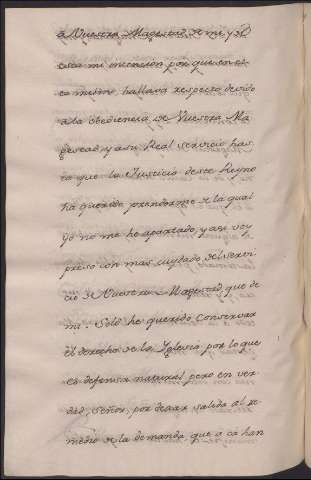 a Vuestra Magestad de mi y de
esta mi intencion por que en es
ta misma, hallara respecto devido
a la obediencia de Vuestra Ma
gestad, y a su Real servicio has
ta que la Justicia deste Reyno
ha querido prenderme de la qual
yo no me he apartado, y asi voy
preso con mas cuydado del servi
cio de Vuestra Magestad que de
mi. Solo he querido Conservar
el derecho de la Yglesia por lo que
es defensa natural pero en ver
dad, Señor, por dexar salida al re
medio de la demanda que acá han